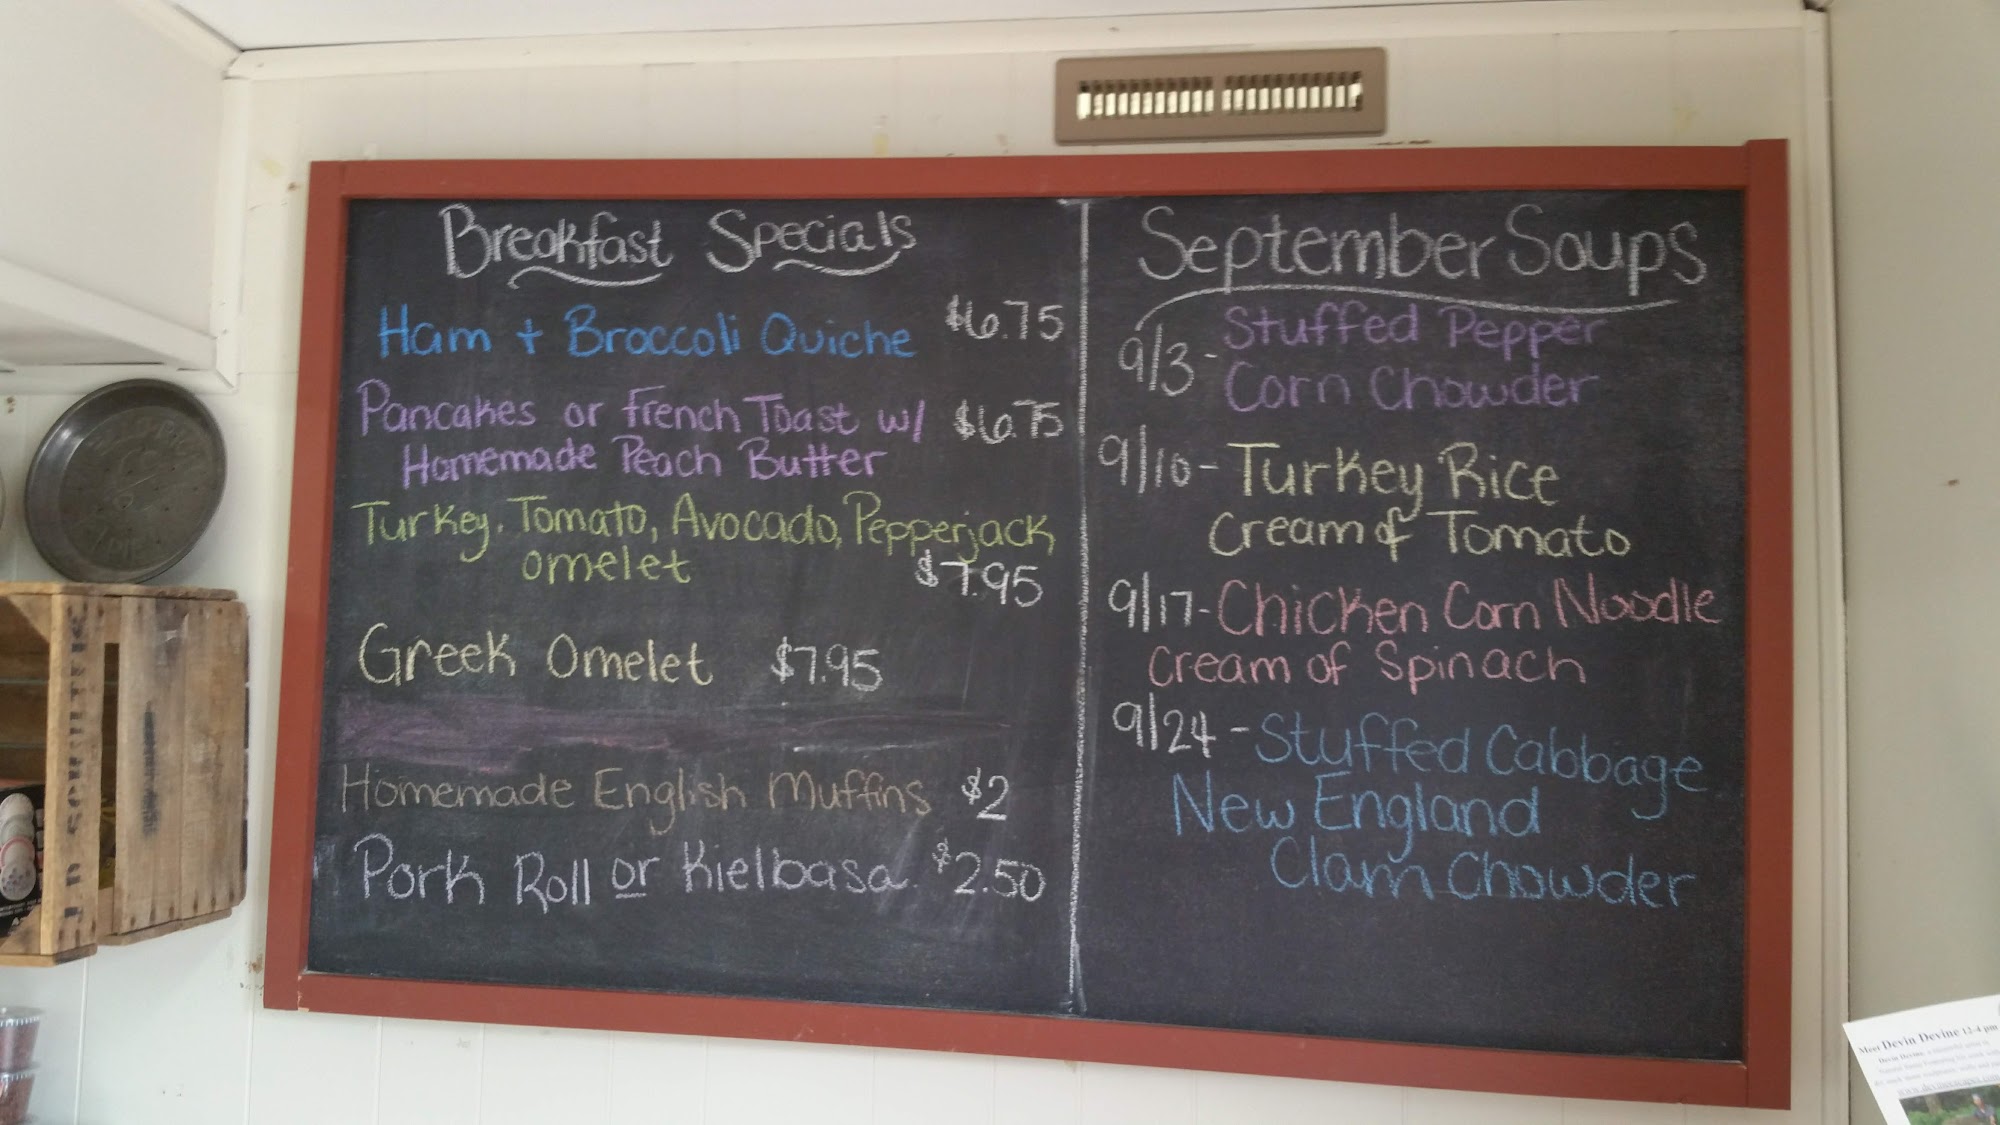 Breakfast Specials
Ham + Broccoli Quiche $6.75
Pancakes or French Toast w/ $6.75
Homemade Peach Butter
Turkey, Tomato, Avocado, Pepperjack
omelet $7.95
Greek Omelet $7.95
Homemade English Muffins $2
Pork Roll or Kielbasa $2.50
September Soups
9/3- Stuffed Pepper
Corn Chowder
9/10- Turkey Rice
Cream of Tomato
9/17- Chicken Corn Noodle
Cream of Spinach
9/24- Stuffed Cabbage
New England
Clam Chowder
Meet Devin Devine 12-4 pm